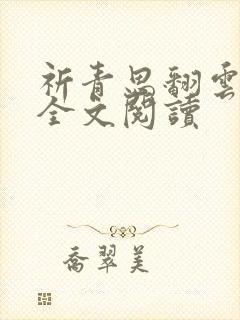 祈青思翻雲
全文閱讀
喬翠美